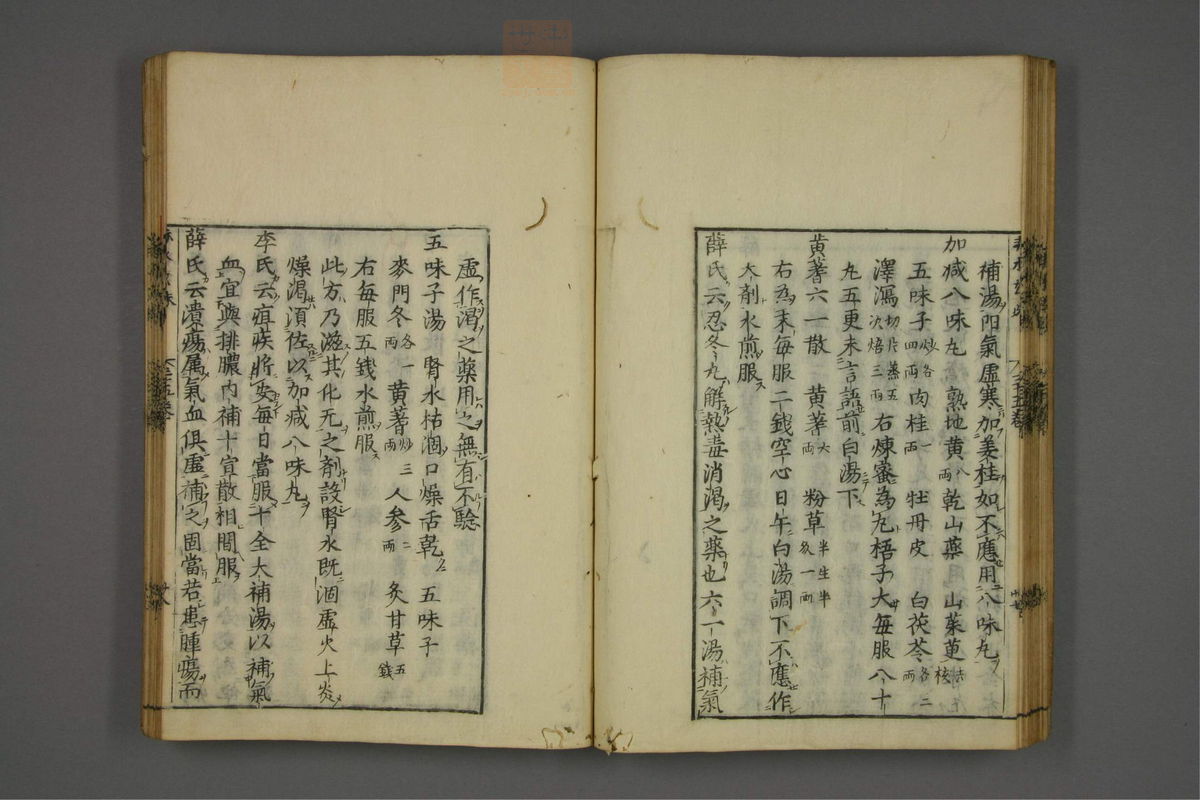 補湯陽氣虛寒加姜桂如不應用八味丸
加减八味丸 熟地黄八兩 乾山藥 山茱萸去核
五味子炒各四兩 肉桂一兩 牡丹皮 白茯苓各二兩
澤瀉切片蒸五次焙三兩 右煉蜜為丸梧子大每服八十
丸五更未言語前白湯下
黄蓍六一散 黄蓍六兩 粉草半生半炙一兩
右為末每服二錢空心日午白湯調下不應作
大劑水煎服
薛氏云忍冬丸解熱毒消渴之藥也六一湯補氣
虛作渴之藥用之無有不驗
五味子湯 腎水枯涸口燥舌乾 五味子
麥門冬各一兩 黄蓍炒三兩 人參二兩 炙甘草五錢
右每服五錢水煎服
此方乃滋其化元之劑設腎水既涸虛火上炎
燥渴湏佐以加减八味丸
李氏云疽疾將安每日當服十全大補湯以補氣
血宜與排膿内補十宣散相間服
薛氏云潰瘍属氣血俱虛補之固當若患腫瘍而